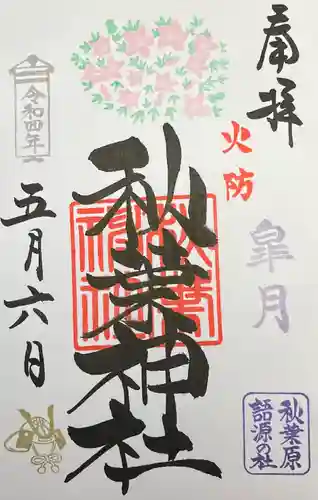 奉拝
火防
皐月
秋葉原
語源の社
秋葉神社
秋葉
神社
令和四年
五月六日